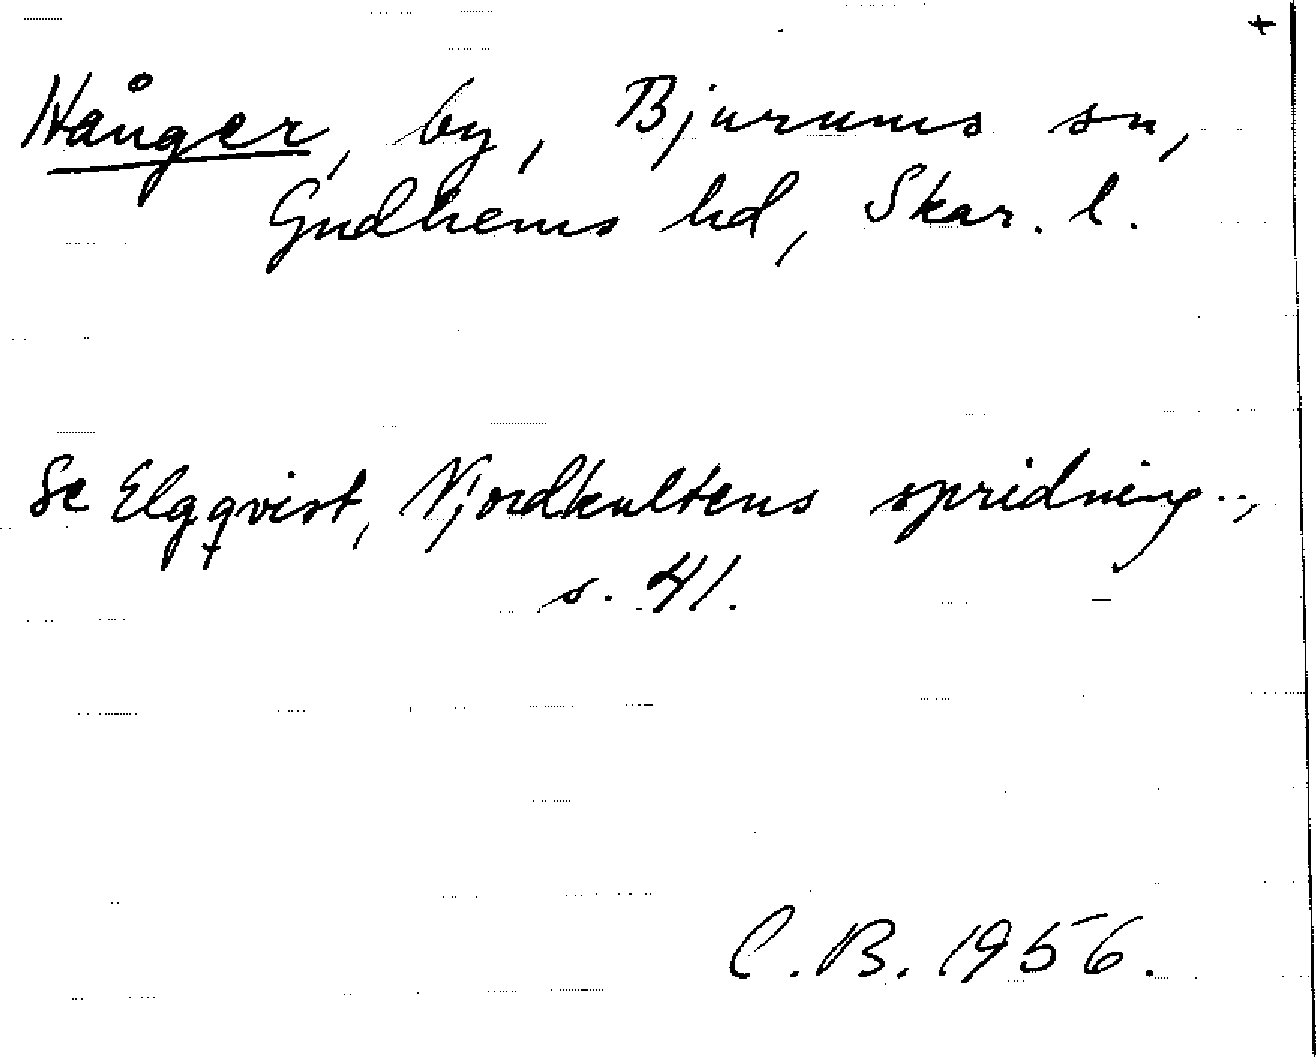 +
Hånger, by, Bjurums sn,
Gudhems hd, Skar. l.
Se Elgqvist, Njordkultens spridning..,
s. 41.
C.B. 1956.